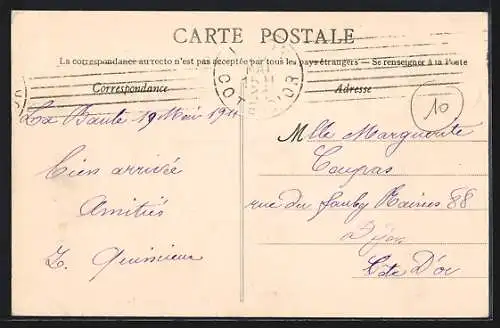 CARTE POSTALE
La correspondance au recto n'est pas acceptée par tous les pays étrangers — Se renseigner à la Poste
Correspondance
Adresse
10
La Baule 19 Mai
Bien arrivée
Amitiés
Mlle Marguerite
rue du faubg Raines 88
Dijon
Côte D'or